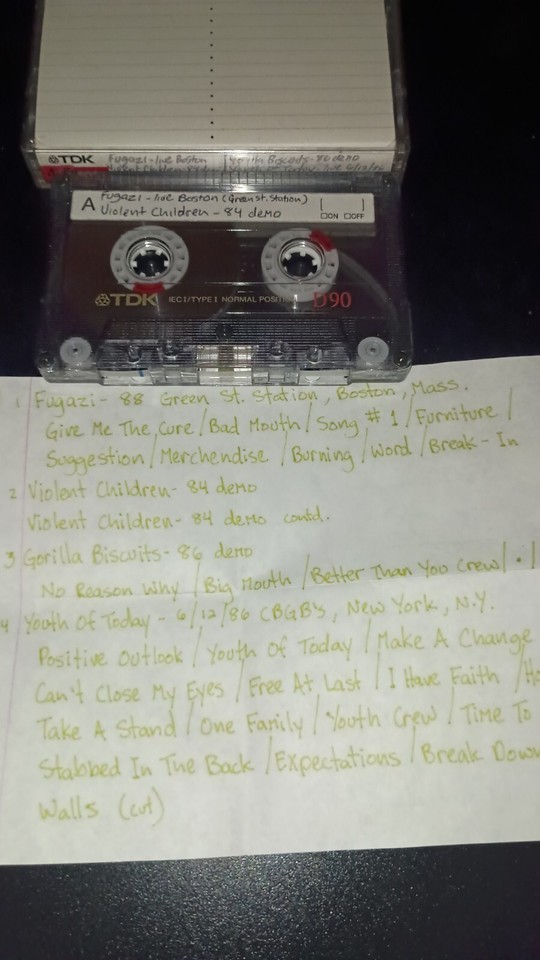 TDK
Fugazi - live Boston
Youth Of Today
A
Fugazi - live Boston (Green St. Station)
Violent Children - 84 demo
[ ]
ON OFF
TDK IEC I/TYPE I NORMAL POSITION D90
1 Fugazi - 88 Green St. Station, Boston, Mass.
Give Me The Cure / Bad Mouth / Song # 1 / Furniture /
Suggestion / Merchendise / Burning / Word / Break - In
2 Violent Children - 84 demo
Violent Children - 84 demo contd.
3 Gorilla Biscuits - 86 demo
No Reason Why / Big Mouth / Better Than You Crew / . /
4 Youth Of Today - 6/12/86 CBGB's, New York, N.Y.
Positive Outlook / Youth Of Today / Make A Change
Can't Close My Eyes / Free At Last / I Have Faith / Ho
Take A Stand / One Family / Youth Crew / Time To
Stabbed In The Back / Expectations / Break Down
Walls (cut)